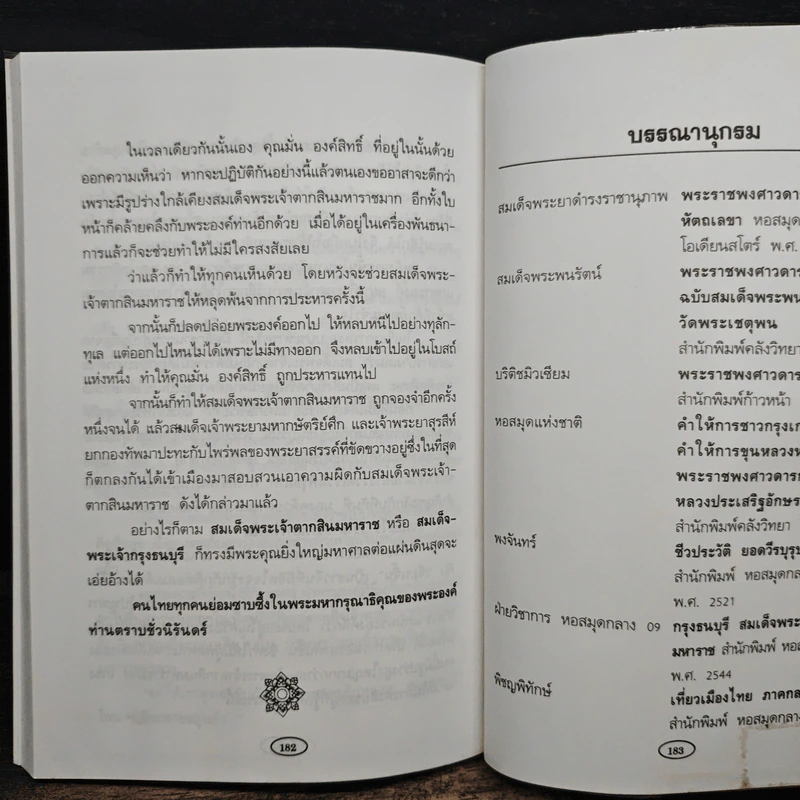 ในเวลาเดียวกันนั้นเอง คุณมั่น องค์สิทธิ์ ที่อยู่ในนั้นด้วย
ออกความเห็นว่า หากจะปฏิบัติกันอย่างนี้แล้วตนเองขออาสาจะดีกว่า
เพราะมีรูปร่างใกล้เคียงสมเด็จพระเจ้าตากสินมหาราชมาก อีกทั้งใบ
หน้าก็คล้ายคลึงกับพระองค์ท่านอีกด้วย เมื่อได้อยู่ในเครื่องพันธนา-
การแล้วก็จะช่วยทำให้ไม่มีใครสงสัยเลย
ว่าแล้วก็ทำให้ทุกคนเห็นด้วย โดยหวังจะช่วยสมเด็จพระ-
เจ้าตากสินมหาราชให้หลุดพ้นจากการประหารครั้งนี้
จากนั้นก็ปลดปล่อยพระองค์ออกไป ให้หลบหนีไปอย่างทุลัก-
ทุเล แต่ออกไปไหนไม่ได้เพราะไม่มีทางออก จึงหลบเข้าไปอยู่ในโบสถ์
แห่งหนึ่ง ทำให้คุณมั่น องค์สิทธิ์ ถูกประหารแทนไป
จากนั้นก็ทำให้สมเด็จพระเจ้าตากสินมหาราช ถูกจองจำอีกครั้ง
หนึ่งจนได้ แล้วสมเด็จเจ้าพระยามหากษัตริย์ศึก และเจ้าพระยาสุรสีห์
ยกกองทัพมาปะทะกับไพร่พลของพระยาสรรค์ที่ขัดขวางอยู่ซึ่งในที่สุด
ก็ตกลงกันได้เข้าเมืองมาสอบสวนเอาความผิดกับสมเด็จพระเจ้า-
ตากสินมหาราช ดังได้กล่าวมาแล้ว
อย่างไรก็ตาม สมเด็จพระเจ้าตากสินมหาราช หรือ สมเด็จ-
พระเจ้ากรุงธนบุรี ก็ทรงมีพระคุณยิ่งใหญ่มหาศาลต่อแผ่นดินสุดจะ
เอ่ยอ้างได้
คนไทยทุกคนย่อมซาบซึ้งในพระมหากรุณาธิคุณของพระองค์
ท่านตราบชั่วนิรันดร์
182
บรรณานุกรม
สมเด็จพระยาดำรงราชานุภาพ พระราชพงศาวดา
หัตถเลขา หอสมุด
โอเดียนสโตร์ พ.ศ.
สมเด็จพระพนรัตน์ พระราชพงศาวดาร
ฉบับสมเด็จพระพน
วัดพระเชตุพน
สำนักพิมพ์คลังวิทยา
บริติชมิวเซียม พระราชพงศาวดาร
สำนักพิมพ์ก้าวหน้า
หอสมุดแห่งชาติ คำให้การชาวกรุงเก
คำให้การขุนหลวงห
พระราชพงศาวดารก
หลวงประเสริฐอักษร
สำนักพิมพ์คลังวิทยา
พงจันทร์ ชีวประวัติ ยอดวีรบุรุษ
สำนักพิมพ์ หอสมุดก
พ.ศ. 2521
ฝ่ายวิชาการ หอสมุดกลาง 09 กรุงธนบุรี สมเด็จพระ
มหาราช สำนักพิมพ์ หอ
พ.ศ. 2544
พิชญพิทักษ์ เที่ยวเมืองไทย ภาคกล
สำนักพิมพ์ หอสมุดกลาง
183